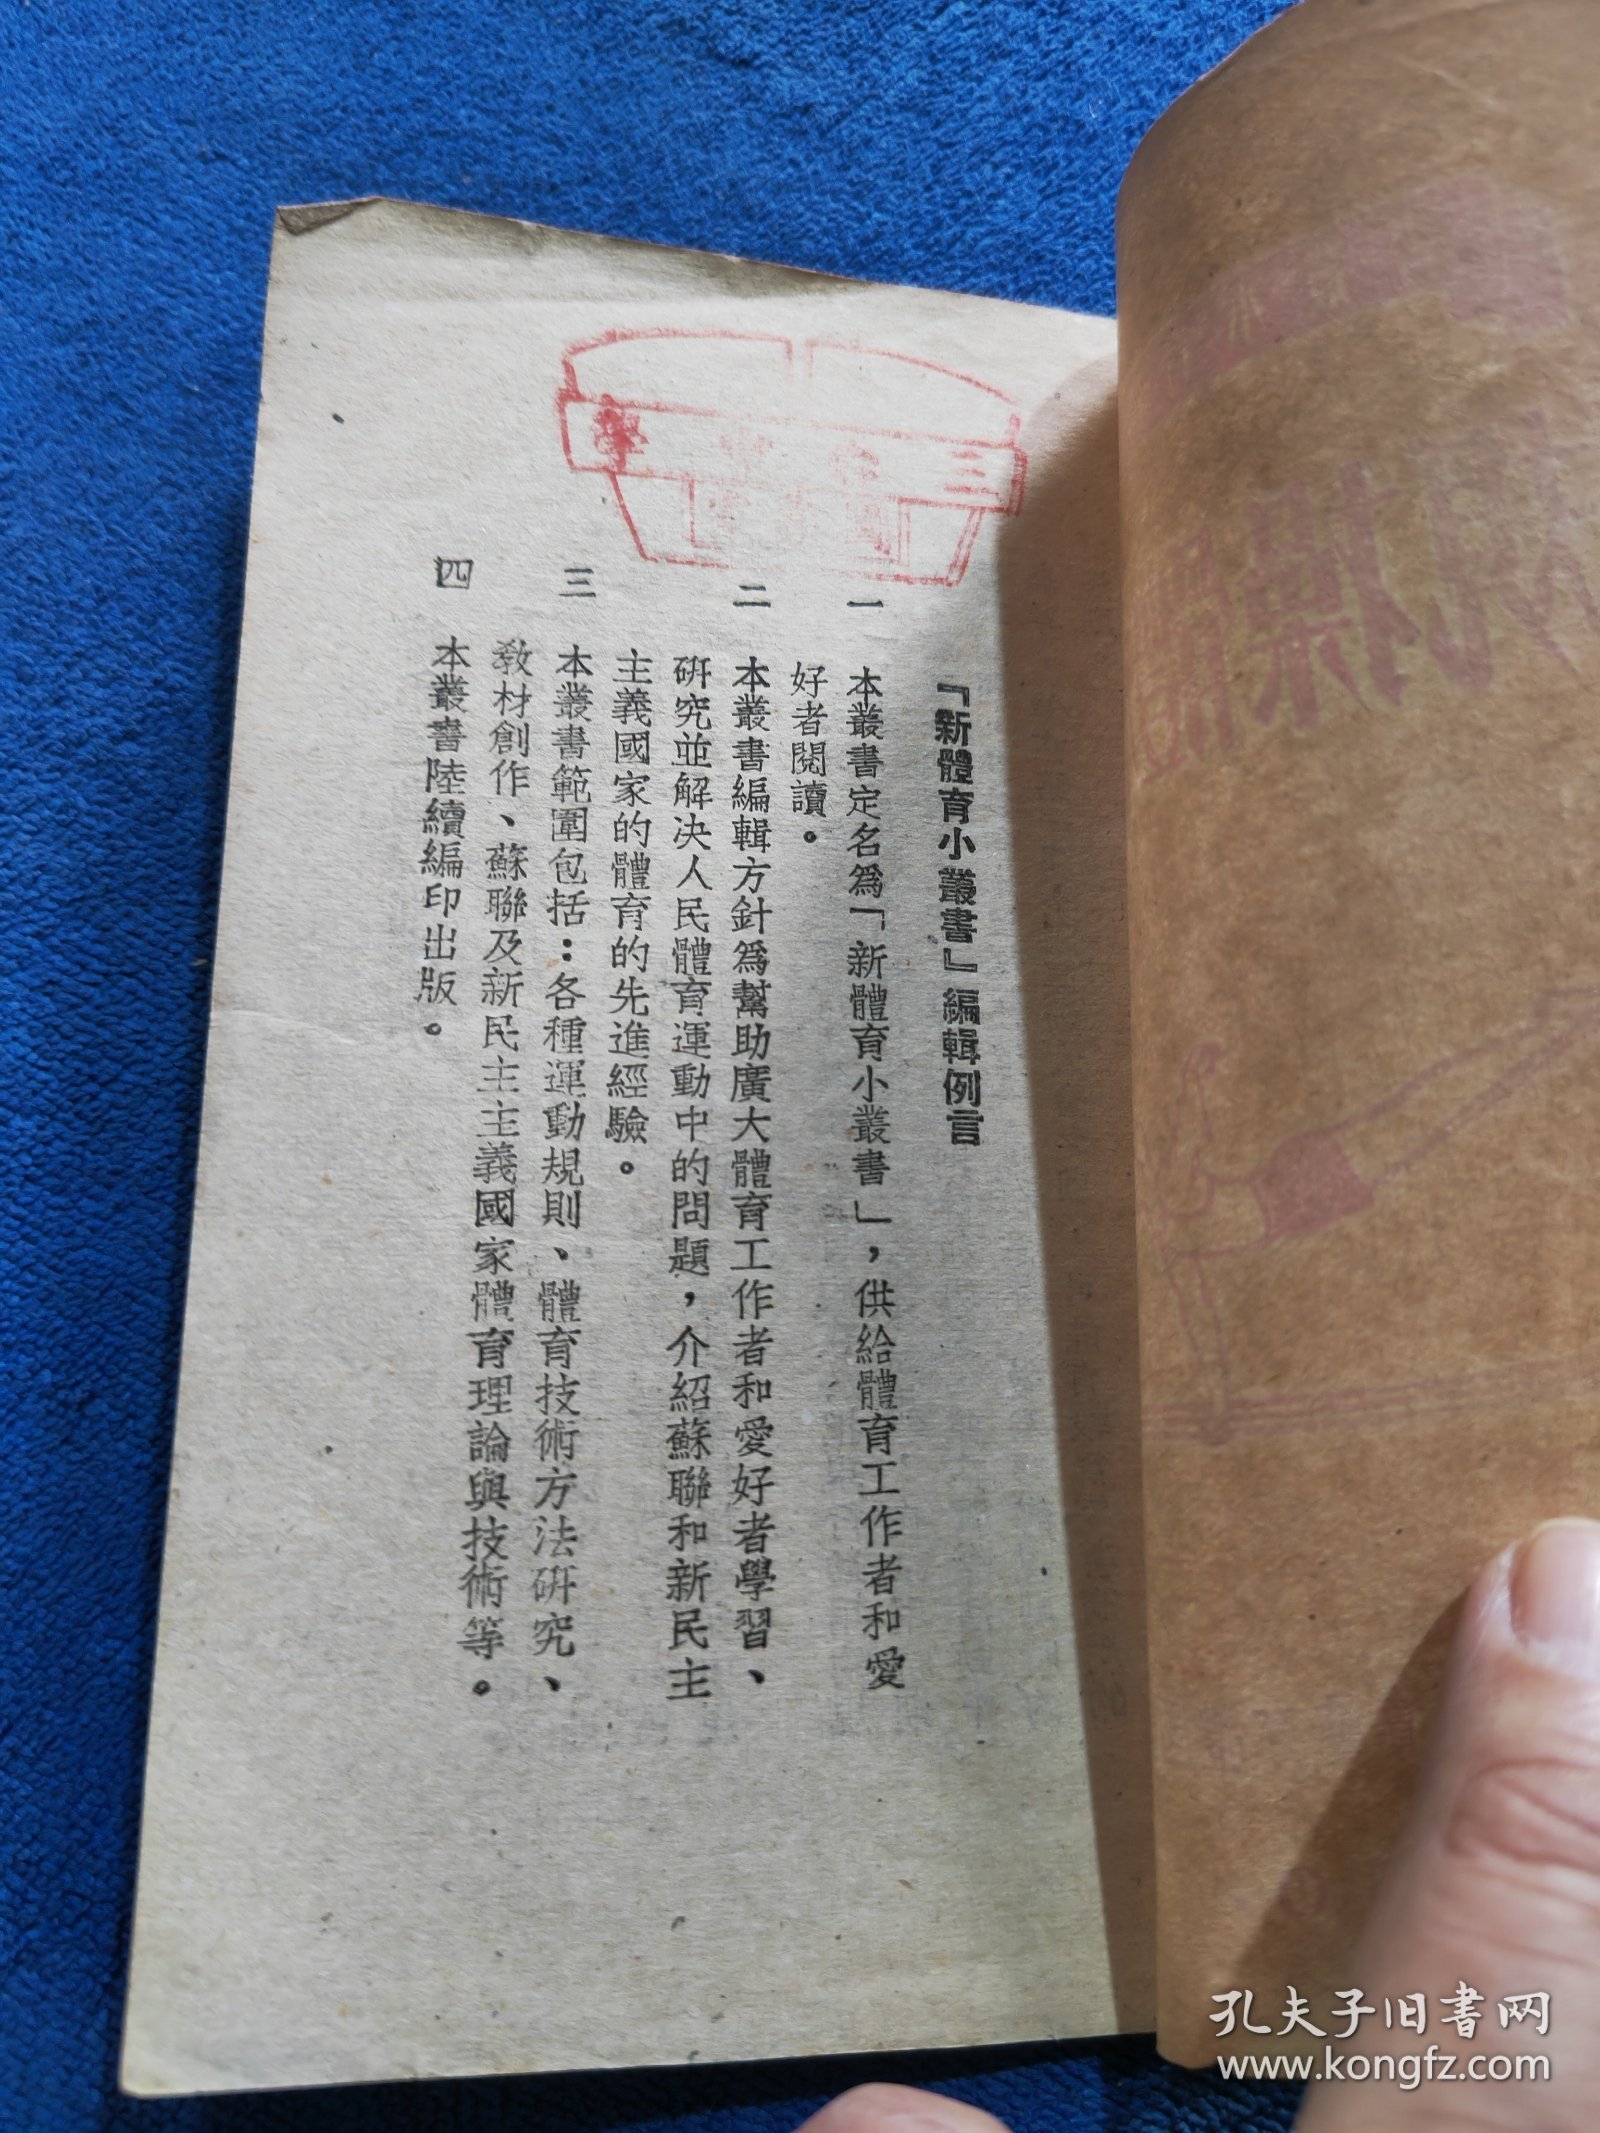 『新體育小叢書』編輯例言
一　本叢書定名爲「新體育小叢書」，供給體育工作者和愛
好者閱讀。
二　本叢書編輯方針爲幫助廣大體育工作者和愛好者學習、
研究並解決人民體育運動中的問題，介紹蘇聯和新民主
主義國家的體育的先進經驗。
三　本叢書範圍包括：各種運動規則、體育技術方法研究、
教材創作、蘇聯及新民主主義國家體育理論與技術等。
四　本叢書陸續編印出版。
孔夫子旧书网
www.kongfz.com